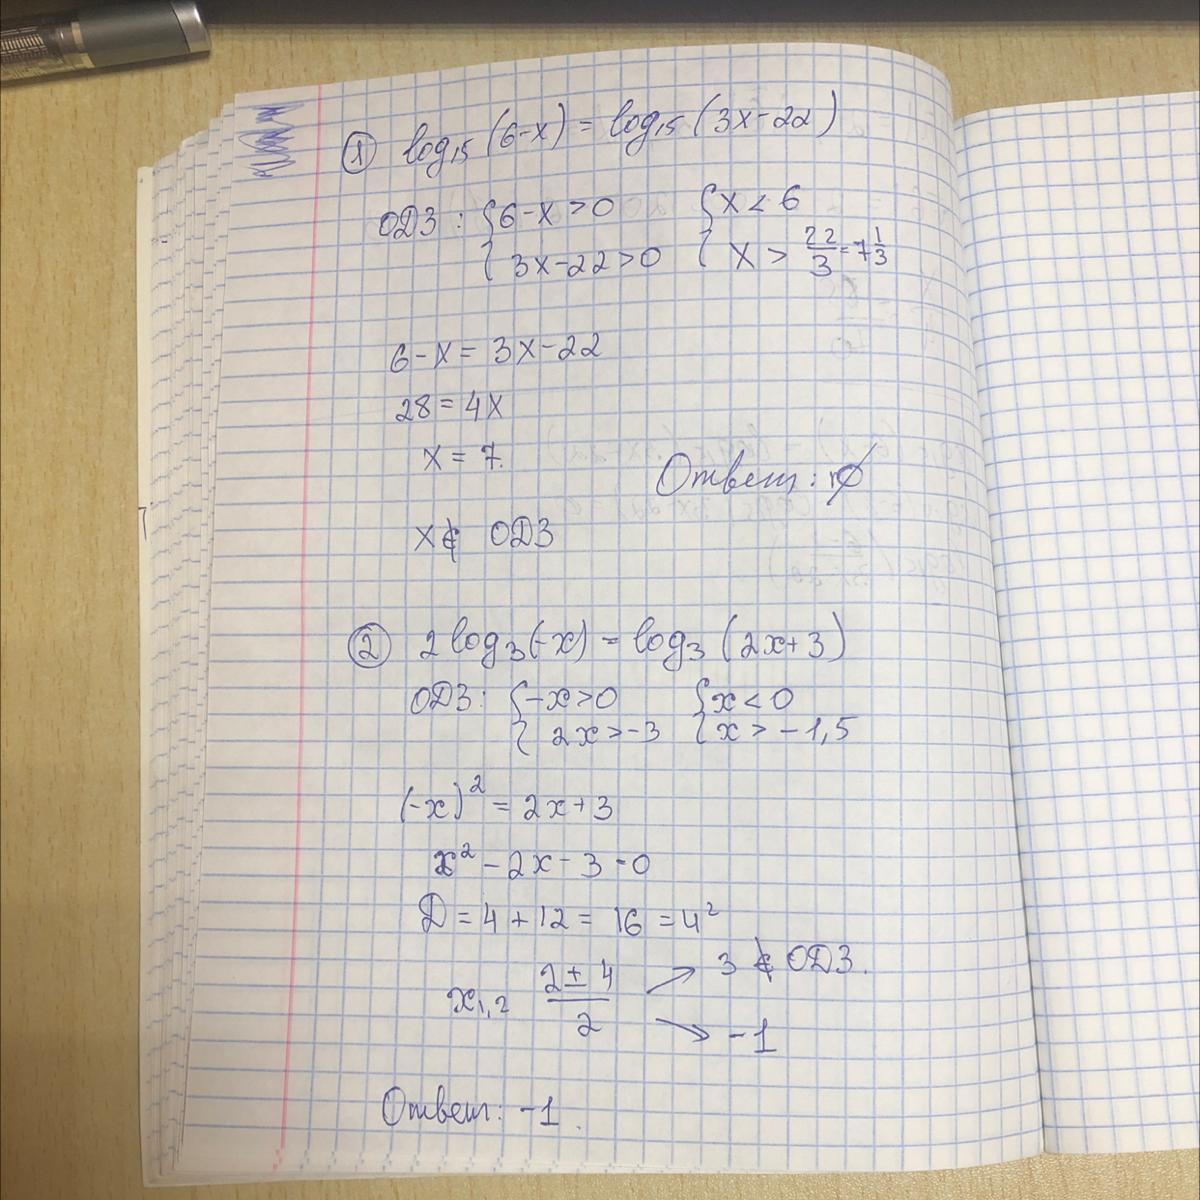 ① log₁₅ (6-x) = log₁₅ (3x-22)
ОДЗ: { 6-x>0 { x<6
{ 3x-22>0 { x > 22/3 = 7 1/3
6-x = 3x-22
28 = 4x
x = 7.
Ответ: ∅
x ∉ ОДЗ
② 2 log₃(-x) = log₃ (2x+3)
ОДЗ: { -x>0 { x<0
{ 2x>-3 { x > -1,5
(-x)² = 2x+3
x² - 2x - 3 = 0
D = 4 + 12 = 16 = 4²
x₁,₂ (2 ± 4)/2 ↗ 3 ∉ ОДЗ.
↘ -1
Ответ: -1.